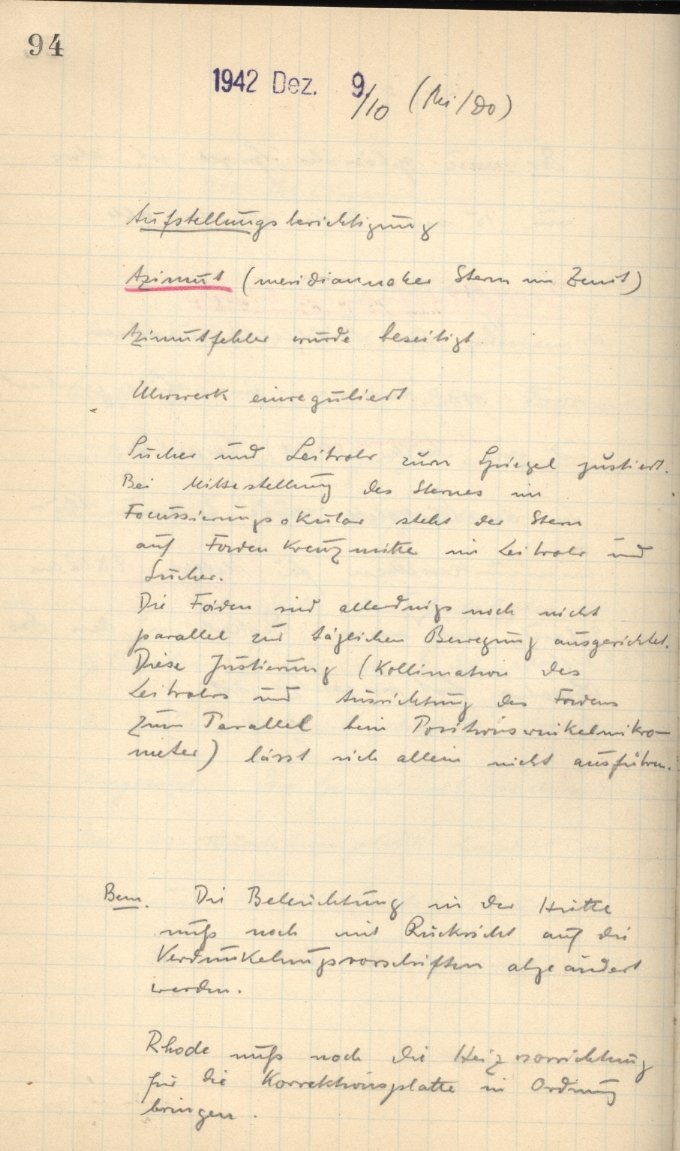 94
1942 Dez. 9/10 (Mi/Do)
Aufstellungsberichtigung
Azimut (meridiannaher Stern im Zenit)
Azimutfehler wurde beseitigt
Uhrwerk einreguliert
Sucher und Leitrohr zum Spiegel justiert.
Bei Mittestellung des Sternes im
Focussierungsokular steht der Stern
auf Fadenkreuzmitte im Leitrohr und
Sucher.
Die Fäden sind allerdings noch nicht
parallel zur täglichen Bewegung ausgerichtet.
Diese Justierung (Kollimation des
Leitrohrs und Ausrichtung des Fadens
zum Parallel beim Positionswinkelmikro-
meter) lässt sich allein nicht ausführen.
Bem. Die Beleuchtung in der Hütte
muß noch mit Rücksicht auf die
Verdunkelungsvorschriften abgeändert
werden.
Rhode muß noch die Heizvorrichtung
für die Korrektionsplatte in Ordnung
bringen.